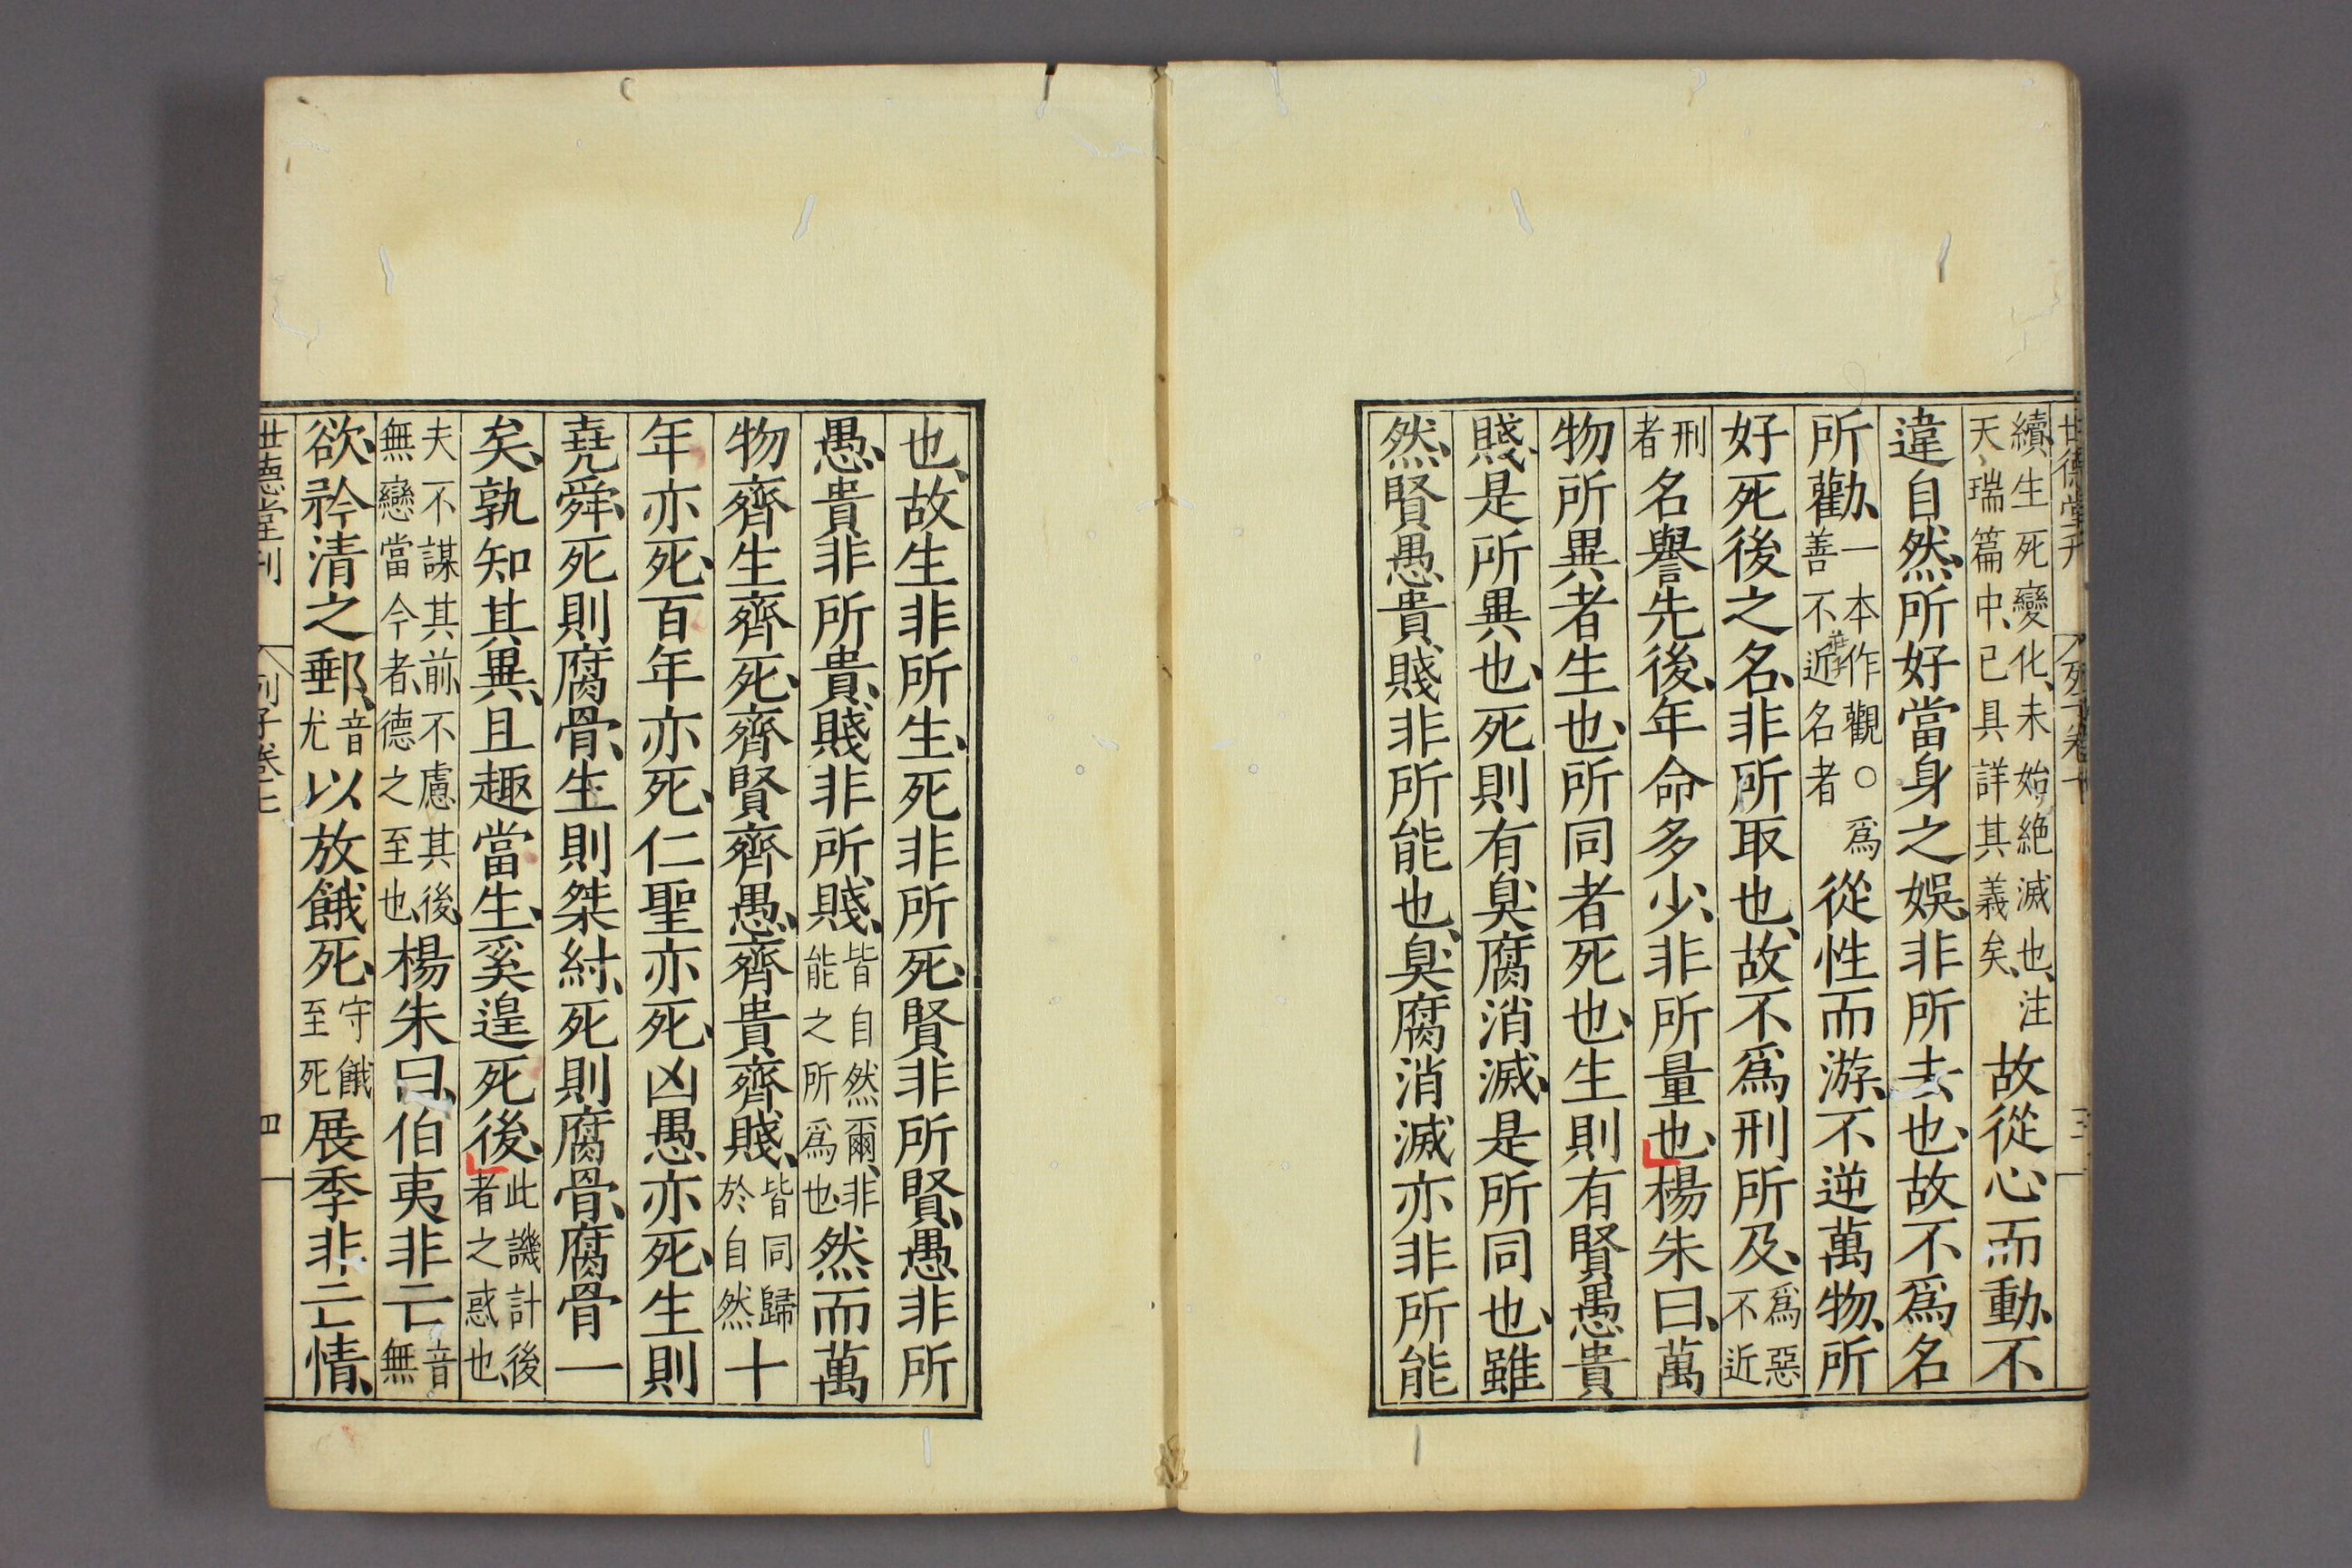 世德堂刊
列子卷七
三
續生死變化、未始絶滅也、注
天瑞篇中、已具詳其義矣、
故從心而動、不
違自然、所好當身之娛、非所去也、故不爲名
所勸、
一本作觀○爲
善不近名者
從性而游、不逆萬物、所
好死後之名、非所取也、故不爲刑所及、
爲惡
不近
刑
者
名譽先後、年命多少、非所量也、楊朱曰、萬
物所異者生也、所同者死也、生則有賢愚貴
賤、是所異也、死則有臭腐消滅、是所同也、雖
然、賢愚貴賤非所能也、臭腐消滅亦非所能
也、故生非所生、死非所死、賢非所賢、愚非所
愚、貴非所貴、賤非所賤、
皆自然爾、非
能之所爲也、
然而萬
物齊生齊死、齊賢齊愚、齊貴齊賤、
皆同歸
於自然
十
年亦死、百年亦死、仁聖亦死、凶愚亦死、生則
堯舜、死則腐骨、生則桀紂、死則腐骨、腐骨一
矣、孰知其異、且趣當生、奚遑死後、
此譏計後
者之惑也、
夫不謀其前、不慮其後、
無戀當今者、德之至也、
楊朱曰、伯夷非亡
音
無
欲、矜清之郵、
音
尤
以放餓死、
守餓
至死
展季非亡情、
世德堂刊
列子卷七
四